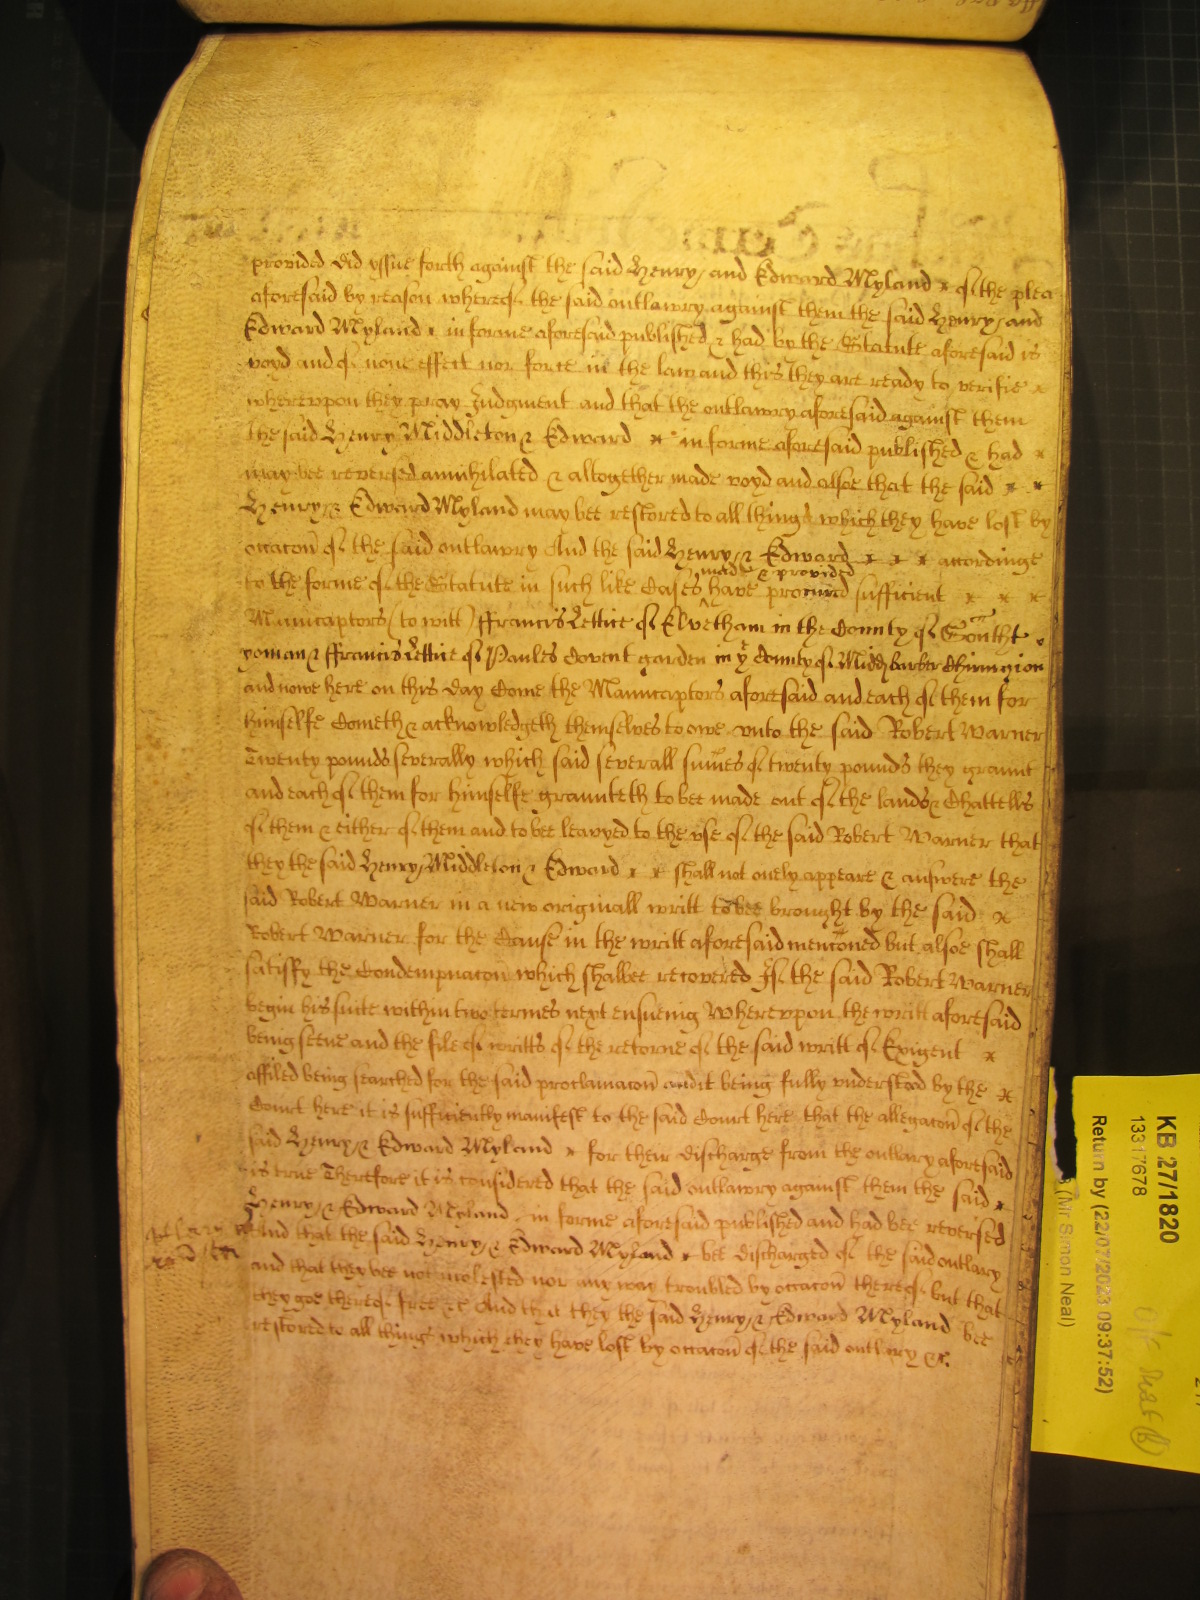 provided did yssue forth against the said Henry, and Edward Myland x of the plea
aforesaid by reason whereof the said outlawry against them the said Henry, and
Edward Myland x in forme aforesaid published & had by the Statute aforesaid is
voyd and of none effect nor force in the law and this they are ready to verifie x
wherevpon they pray Judgment and that the outlawry aforesaid against them
the said Henry Middleton & Edward x in forme aforesaid published & had x
may bee reversed annihilated & altogether made voyd and alsoe that the said x x
Henry, & Edward Myland may bee restored to all things which they have lost by
occacon of the said outlawry And the said Henry, & Edward x x x accordinge
made & provided
to the forme of the Statute in such like Cases ^ have procured sufficient x x x
Manucaptors (to witt) ffrancis Lettice of Elvetham in the County of Southt
yoman & ffrancis Lettice of Paules Covent garden in ye County of Midd barber Chirurgion
and nowe here on this day Come the Manucaptors aforesaid and each of them for
himselfe Cometh & acknowledgeth themselves to owe vnto the said Robert Warner
Twenty pounds severally which said severall sumes of twenty pounds they graunt
and each of them for himselfe graunteth to bee made out of the lands & Chattells
of them & either of them and to bee leavyed to the vse of the said Robert Warner that
they the said Henry, Middleton & Edward x x shall not onely appeare & answere the
said Robert Warner in a new originall writt to bee brought by the said x
Robert Warner for the Cause in the writt aforesaid menconed but alsoe shall
satisfy the Condempnacon which shalbee recovered If the said Robert Warner
begin his suite within two termes next ensueing Wherevpon the writt aforesaid
being seene and the file of writts of the retorne of the said writt of Exigent x
affiled being searched for the said proclamacon and it being fully vnderstood by the x
Court here it is sufficiently manifest to the said Court here that the allegacon of the
said Henry, & Edward Myland x for their discharge from the outlary aforesaid
is true Therefore it is considered that the said outlawry against them the said x
Henry, & Edward Myland in forme aforesaid published and had bee reversed
And that the said Henry, & Edward Myland x bee discharged of the said outlary
and that they bee not molested nor any way troubled by occacon thereof but that
they goe thereof free &c And that they the said Henry, & Edward Myland bee
restored to all things which they have lost by occacon of the said outlawry &c.
KB 27/1820
13317678
Return by (22/07/2023 09:37:52)
(Mr Simon Neal)